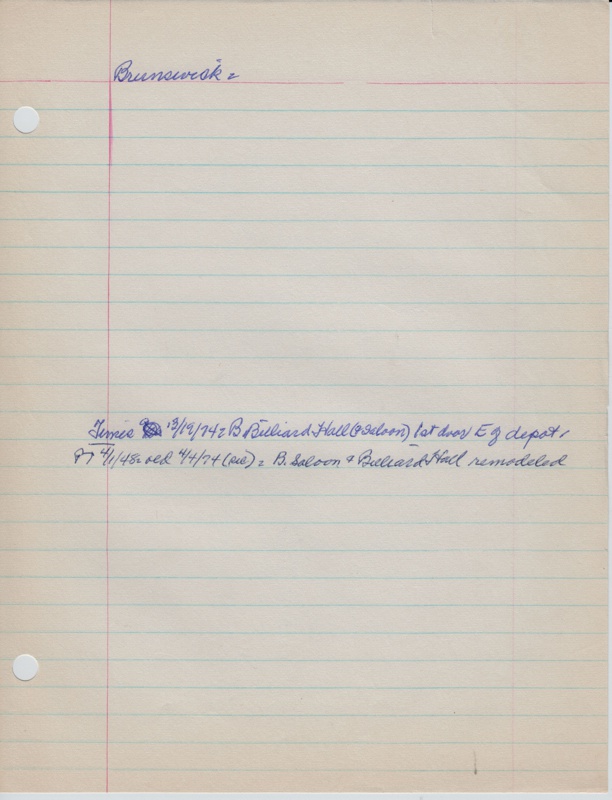 Brunswick =
Times 3/19/74 = B Billiard Hall (& Saloon) 1st door E of depot.
4/1/48 = old 4/4/74 (sic) = B. Saloon & Billiard Hall remodeled